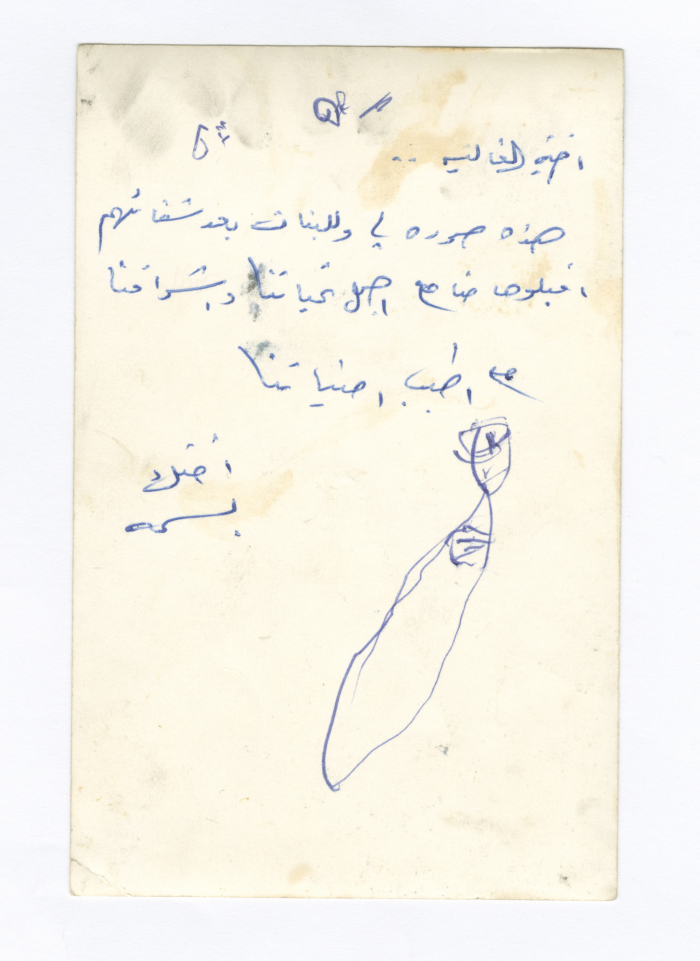 اختي الغاليه ..
هذه صوره لي وللبنات بعد شفائهم
اقبلوها منا مع اجمل تحياتنا واشواقنا
مع اطيب امنياتنا
اختك
بسمه